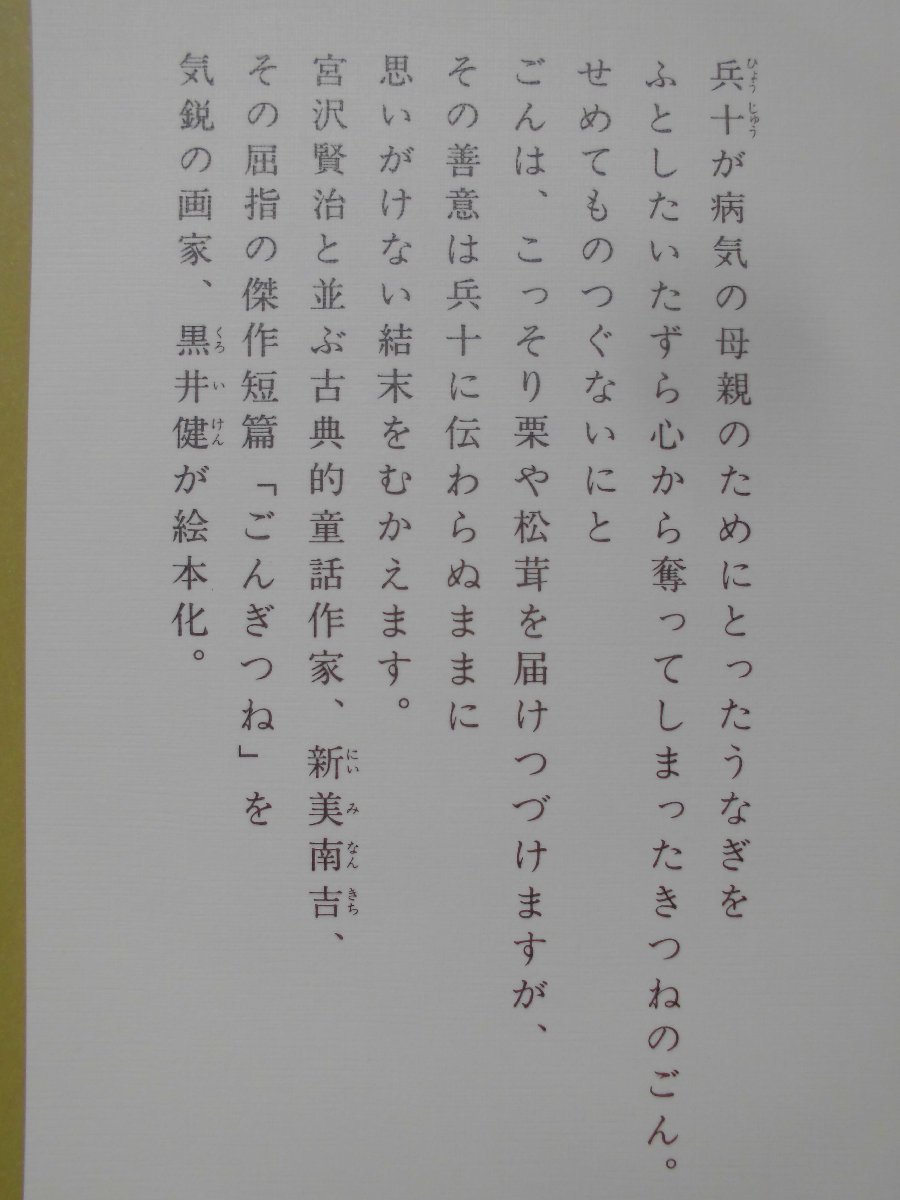 兵十が病気の母親のためにとったうなぎを
ふとしたいたずら心から奪ってしまったきつねのごん。
せめてものつぐないにと
ごんは、こっそり栗や松茸を届けつづけますが、
その善意は兵十に伝わらぬままに
思いがけない結末をむかえます。
宮沢賢治と並ぶ古典的童話作家、新美南吉、
その屈指の傑作短篇「ごんぎつね」を
気鋭の画家、黒井健が絵本化。